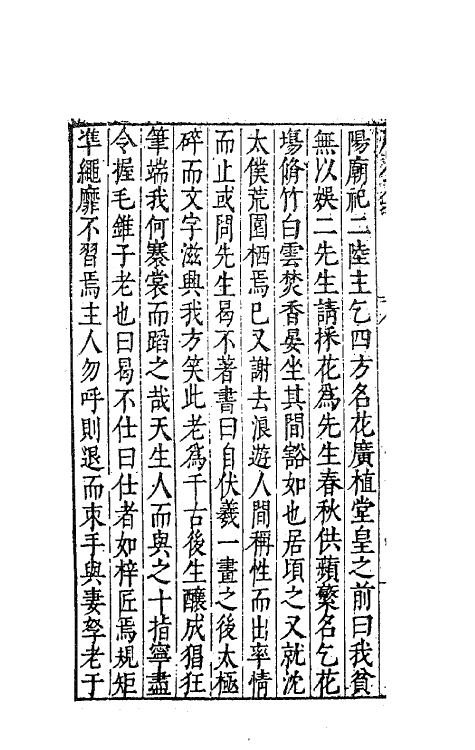 陽廟祀二陸主乞四方名花廣植堂皇之前曰我貧
無以娛二先生請採花爲先生春秋供蘋蘩名乞花
塲脩竹白雲焚香晏坐其間豁如也居頃之又就沈
太僕荒園栖焉巳又謝去浪遊人間稱性而出率情
而止或問先生曷不著書曰自伏羲一畫之後太極
碎而文字滋興我方笑此老爲千古後生釀成猖狂
筆端我何褰裳而蹈之哉天生人而與之十指寧盡
令握毛錐子老也曰曷不仕曰仕者如梓匠焉規矩
準繩靡不習焉主人勿呼則退而束手與妻孥老于